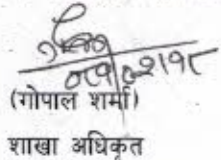 (गोपाल शर्मा)
शाखा अधिकृत